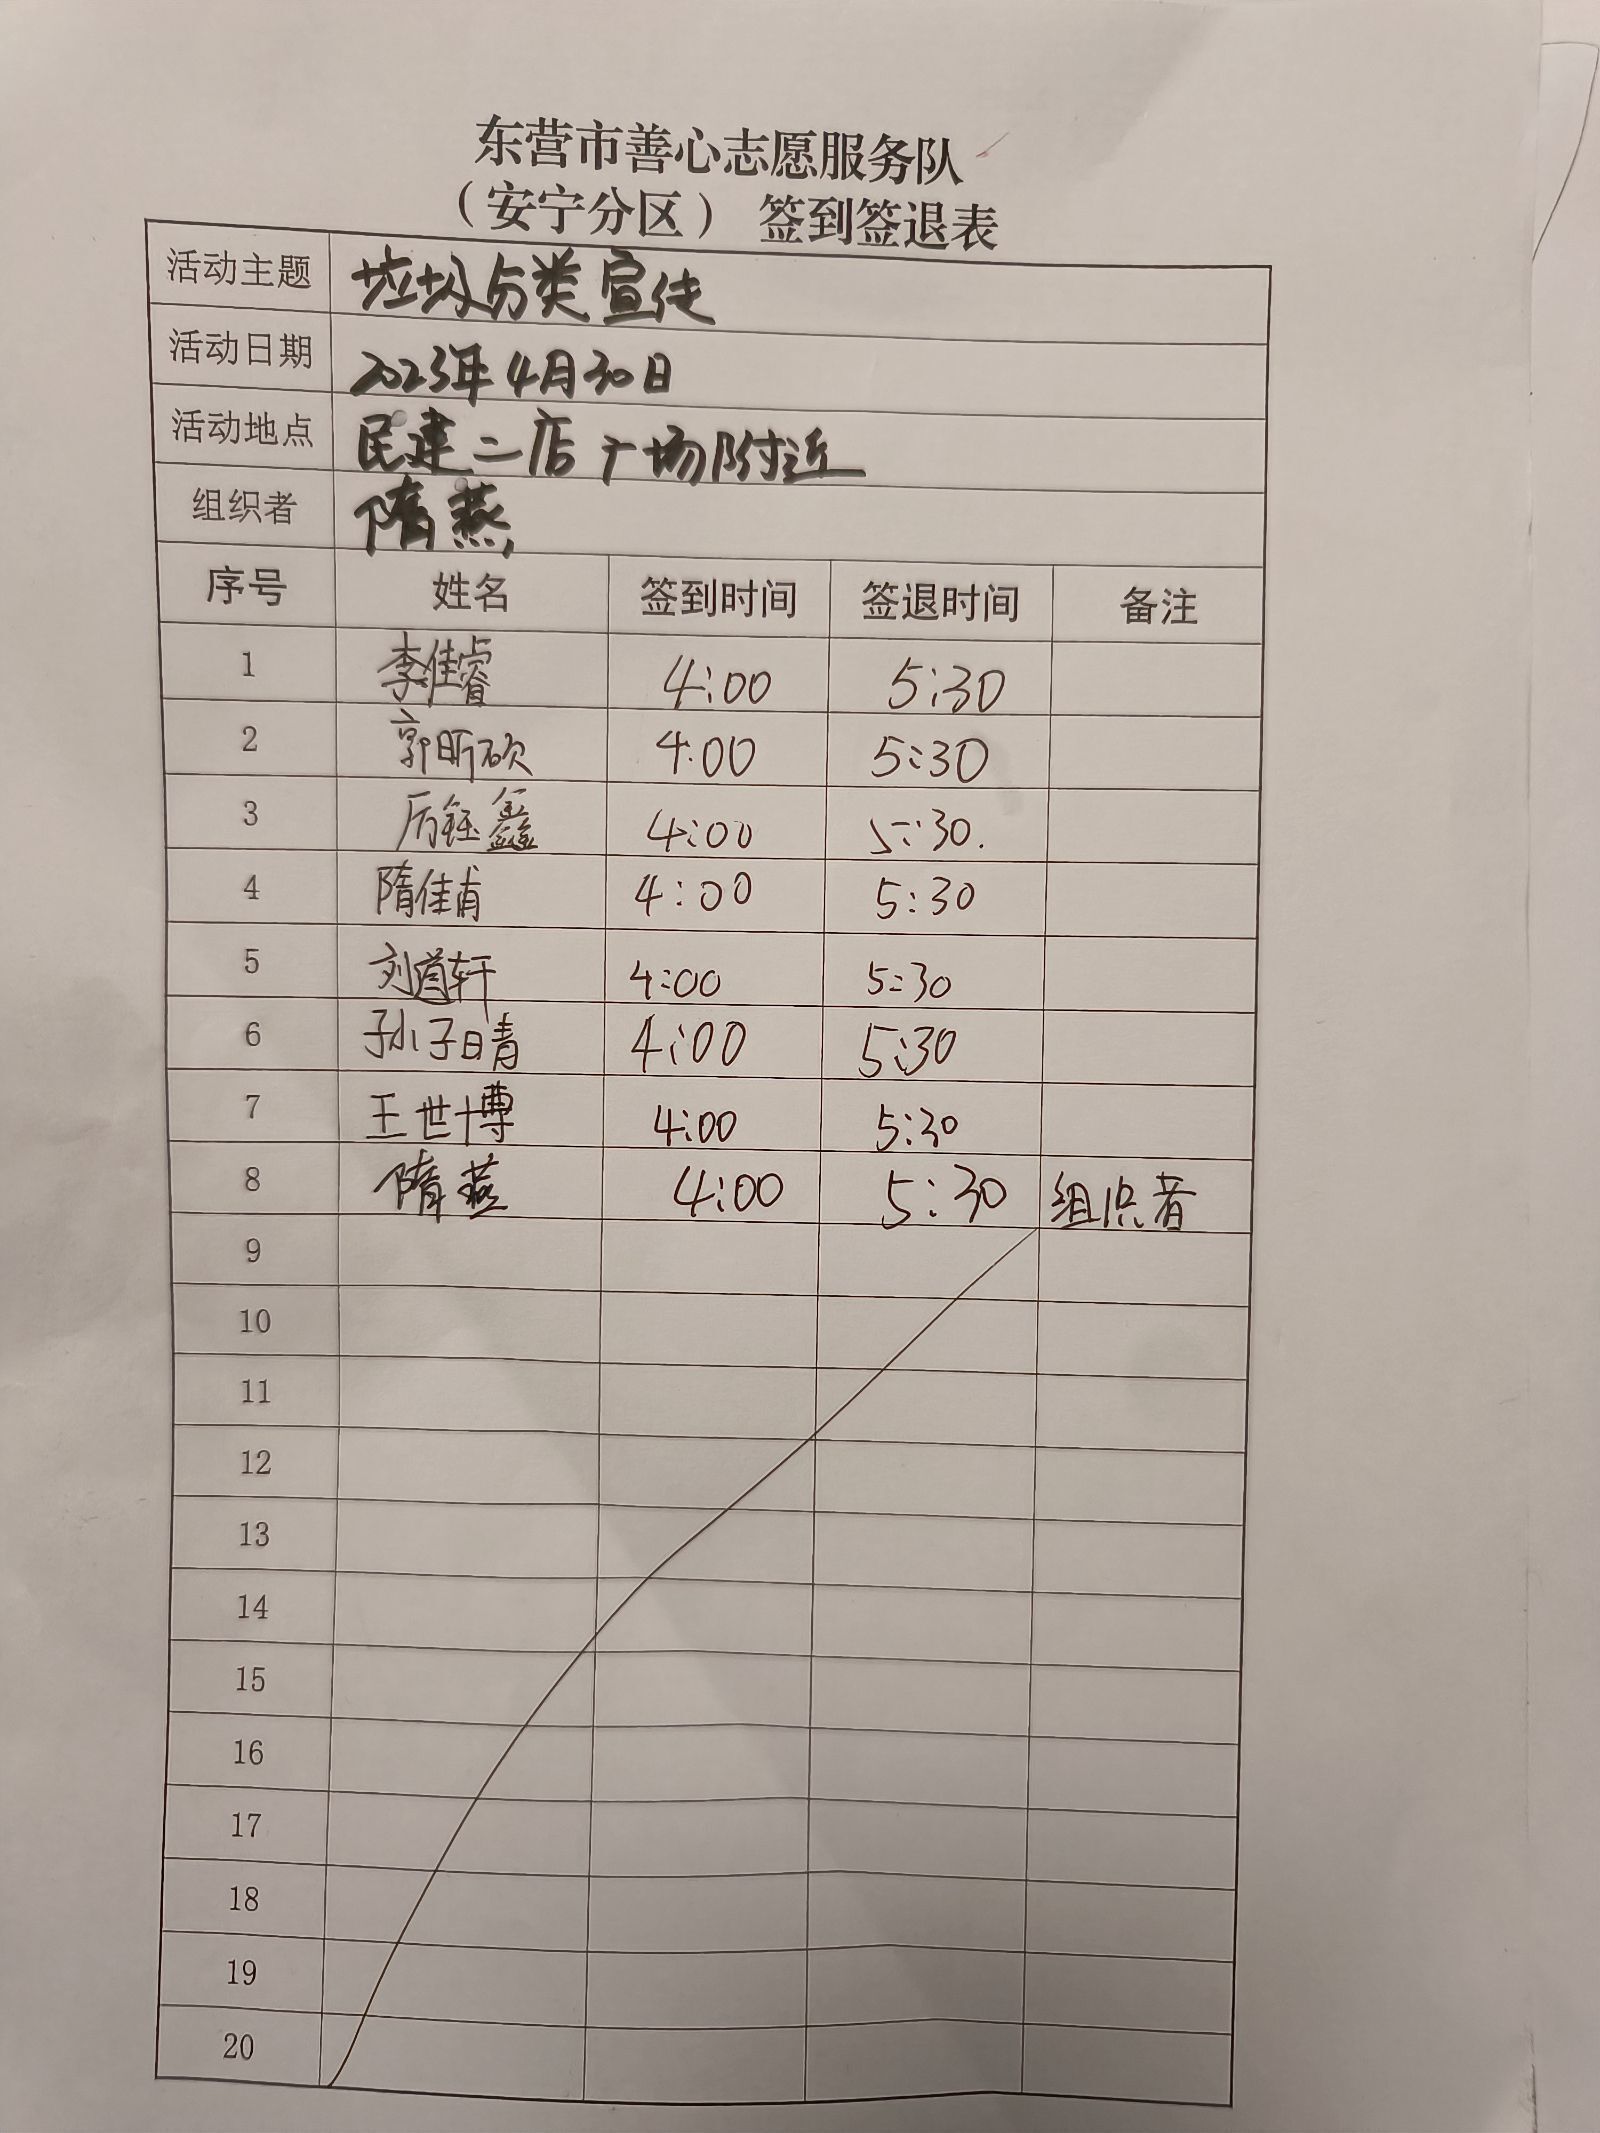 东营市善心志愿服务队
（安宁分区） 签到签退表
活动主题 垃圾分类宣传
活动日期 2023年4月30日
活动地点 民建二店广场附近
组织者 隋燕
序号 姓名 签到时间 签退时间 备注
1 李佳睿 4:00 5:30
2 郭昕砍 4:00 5:30
3 厉钰鑫 4:00 5:30.
4 隋佳甫 4:00 5:30
5 刘道轩 4:00 5:30
6 孙子晴 4:00 5:30
7 王世博 4:00 5:30
8 隋燕 4:00 5:30 组织者
9
10
11
12
13
14
15
16
17
18
19
20